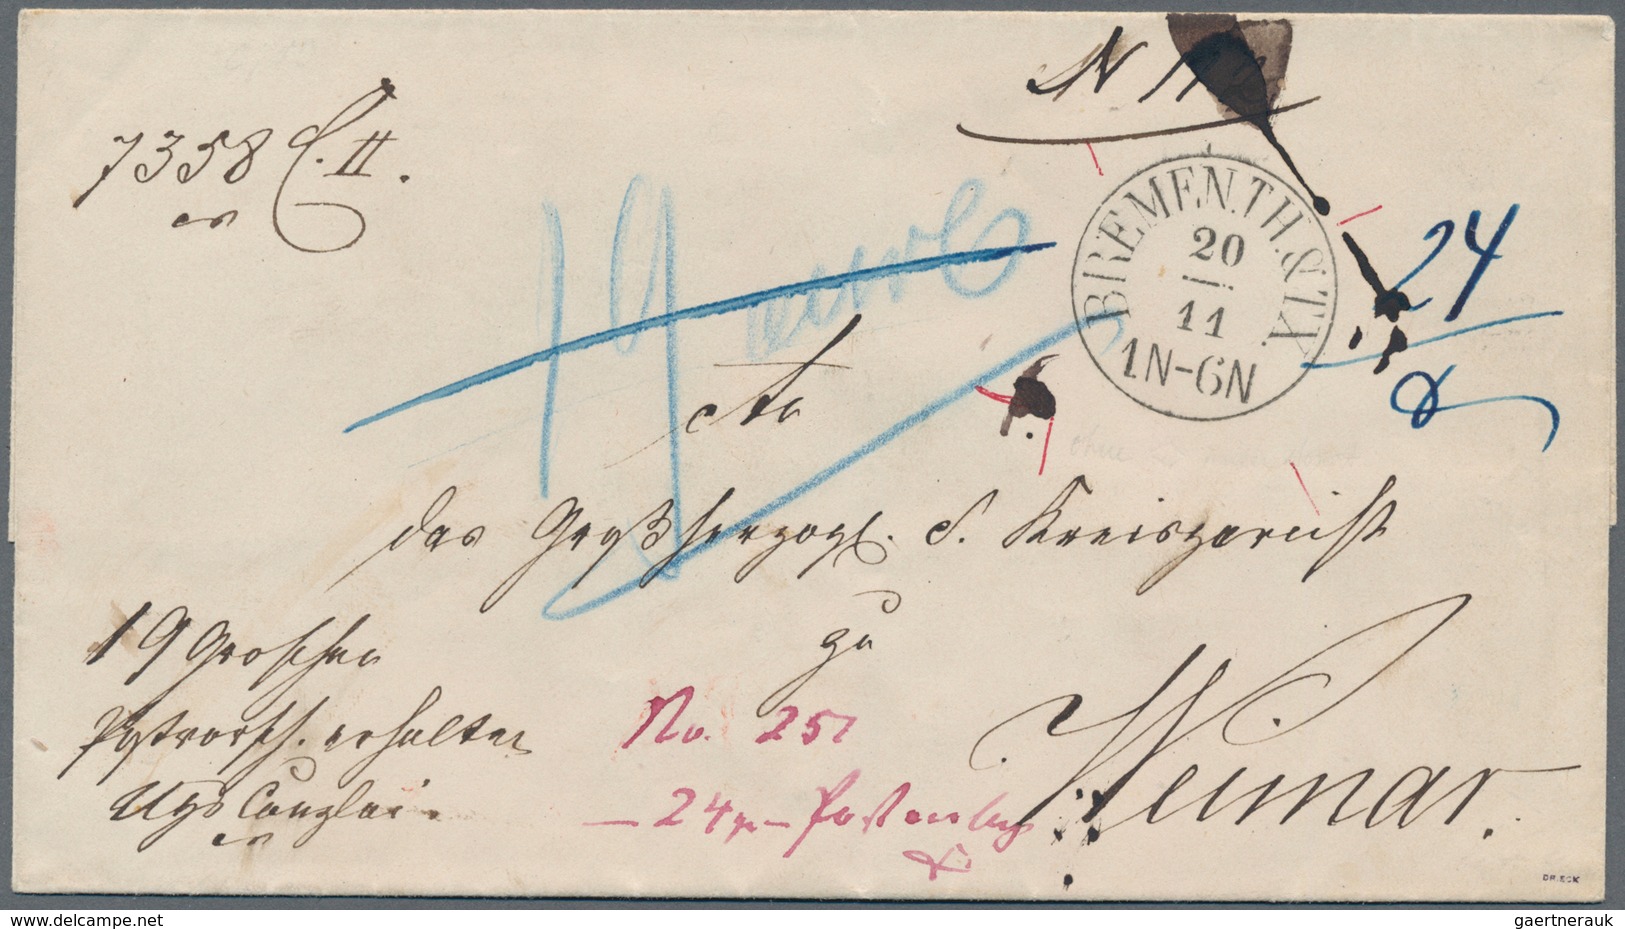 7358 C. II.
N
BREMEN.TH.&TX.
20
11
1N-6N
24
19
An
das Großherzogl. S. Kreisgericht
zu
Weimar.
19 Groschen
Postvorsch. erhalten
Canzlei.
No. 251
— 24 gr —
DR.ECK
www.delcampe.net
gaertnerauk